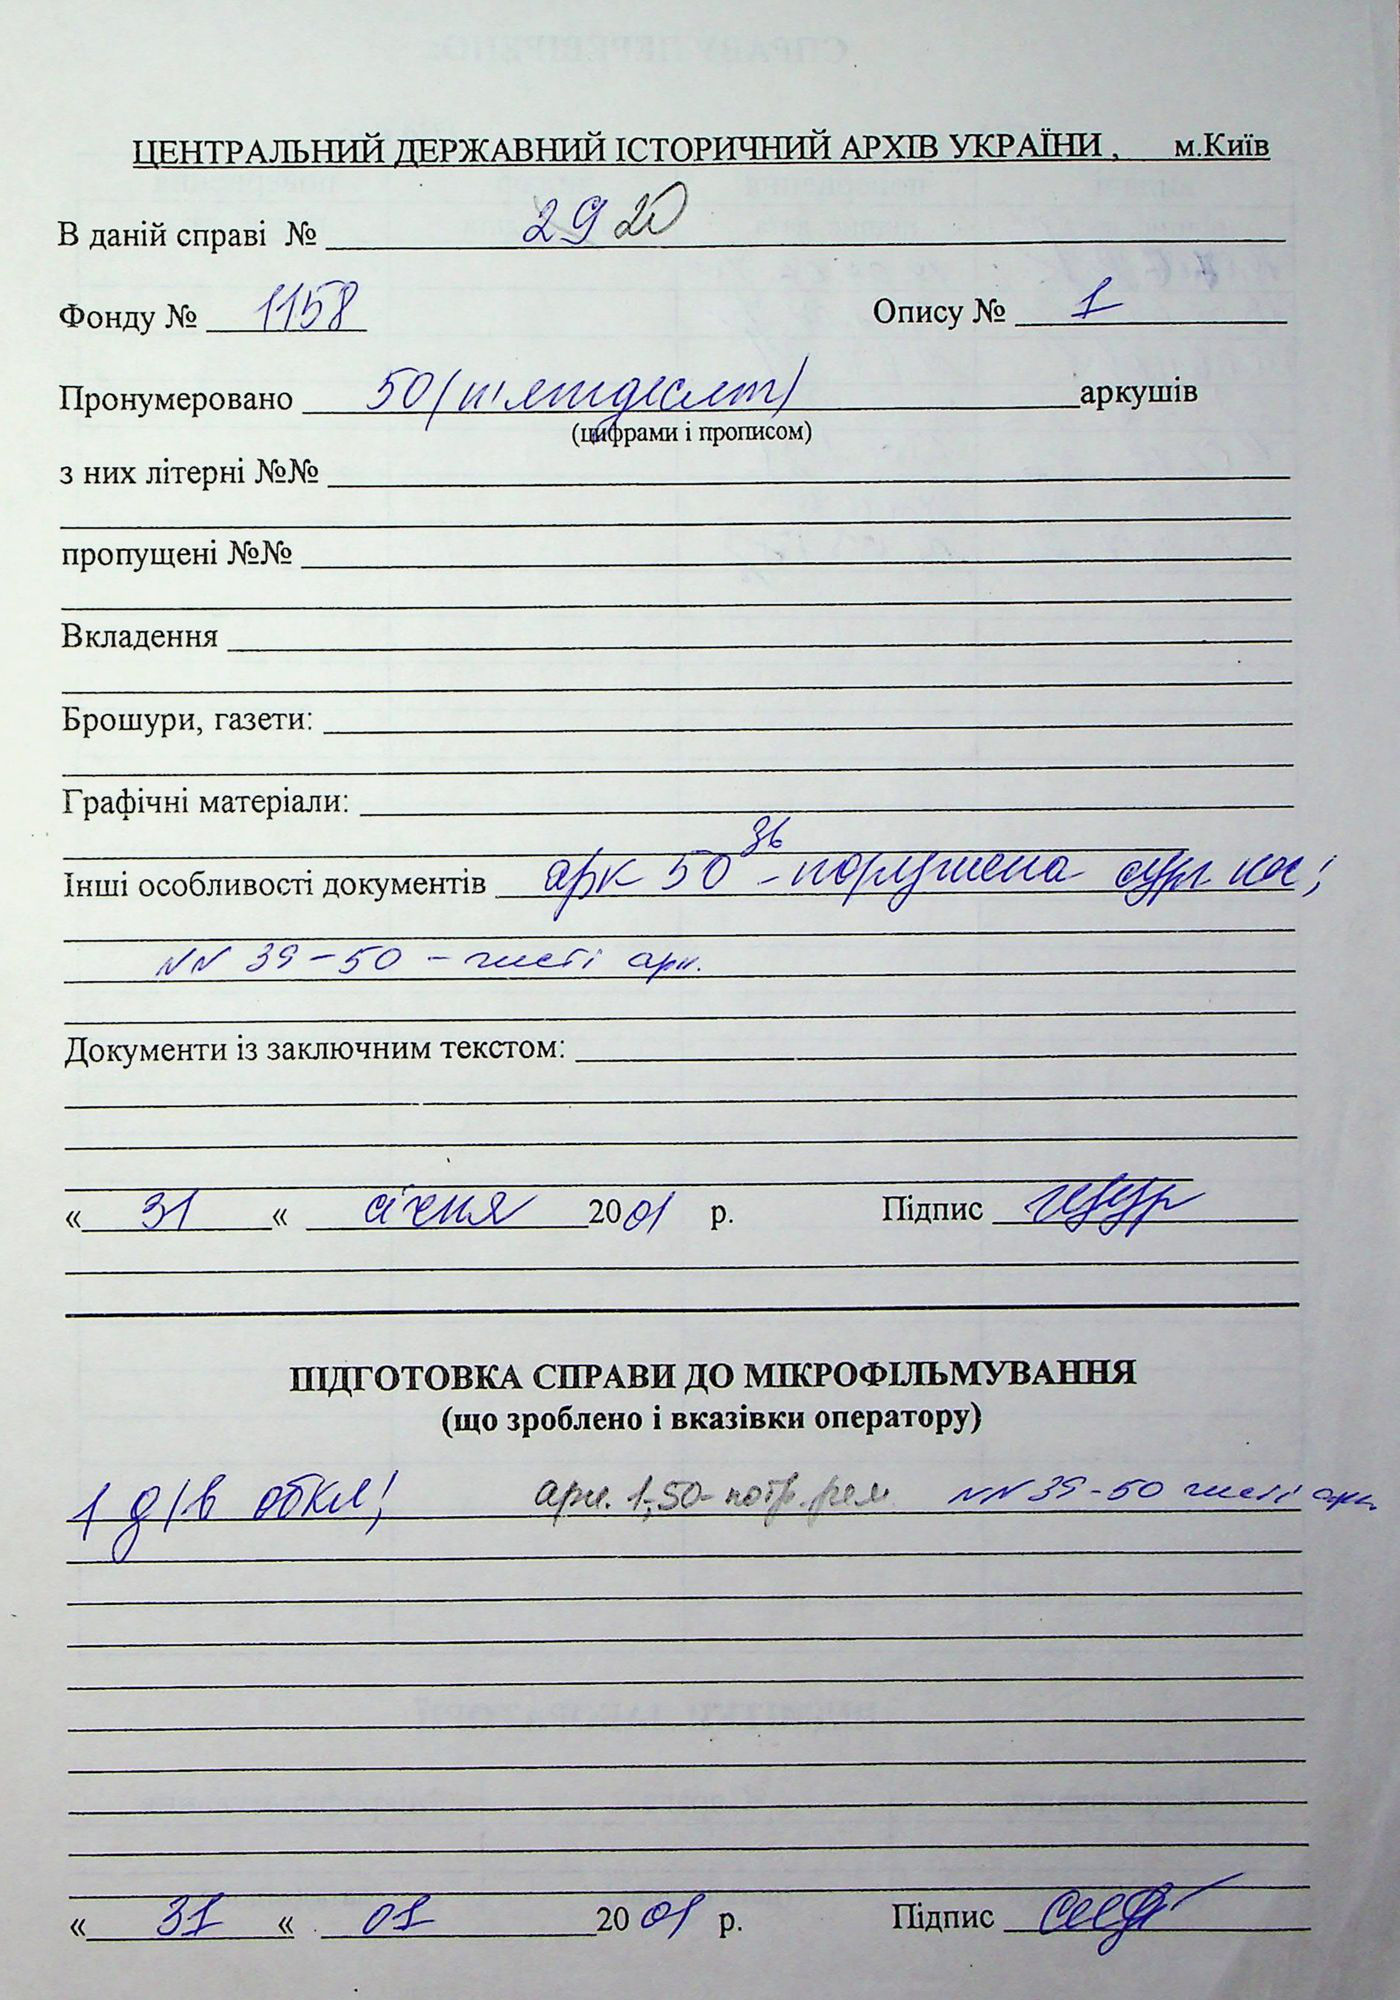 ЦЕНТРАЛЬНИЙ ДЕРЖАВНИЙ ІСТОРИЧНИЙ АРХІВ УКРАЇНИ , м.Київ
В даній справі № 2920
Фонду № 1158 Опису № 1
Пронумеровано 50 (п'ятдесят) аркушів
(цифрами і прописом)
з них літерні №№
пропущені №№
Вкладення
Брошури, газети:
Графічні матеріали:
Інші особливості документів арк 50 зв - порушена
NN 39 - 50 - чисті арк.
Документи із заключним текстом:
« 31 « січня 2001 р. Підпис
ПІДГОТОВКА СПРАВИ ДО МІКРОФІЛЬМУВАННЯ
(що зроблено і вказівки оператору)
1 д/в обкл; арк. 1,50- потр. рем. NN 39 - 50 чисті арк.
« 31 « 01 2001 р. Підпис